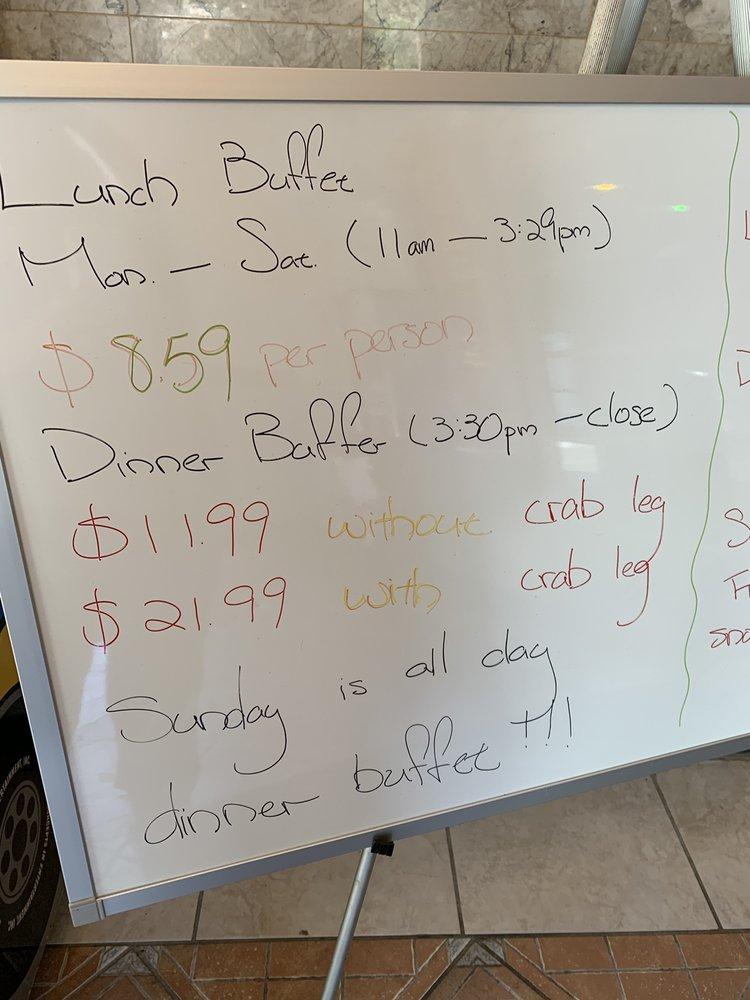 Lunch Buffet
Mon. — Sat. (11am — 3:29pm)
$8.59 per person
Dinner Buffet (3:30pm - close)
$11.99 without crab leg
$21.99 with crab leg
Sunday is all day
dinner buffet !!!